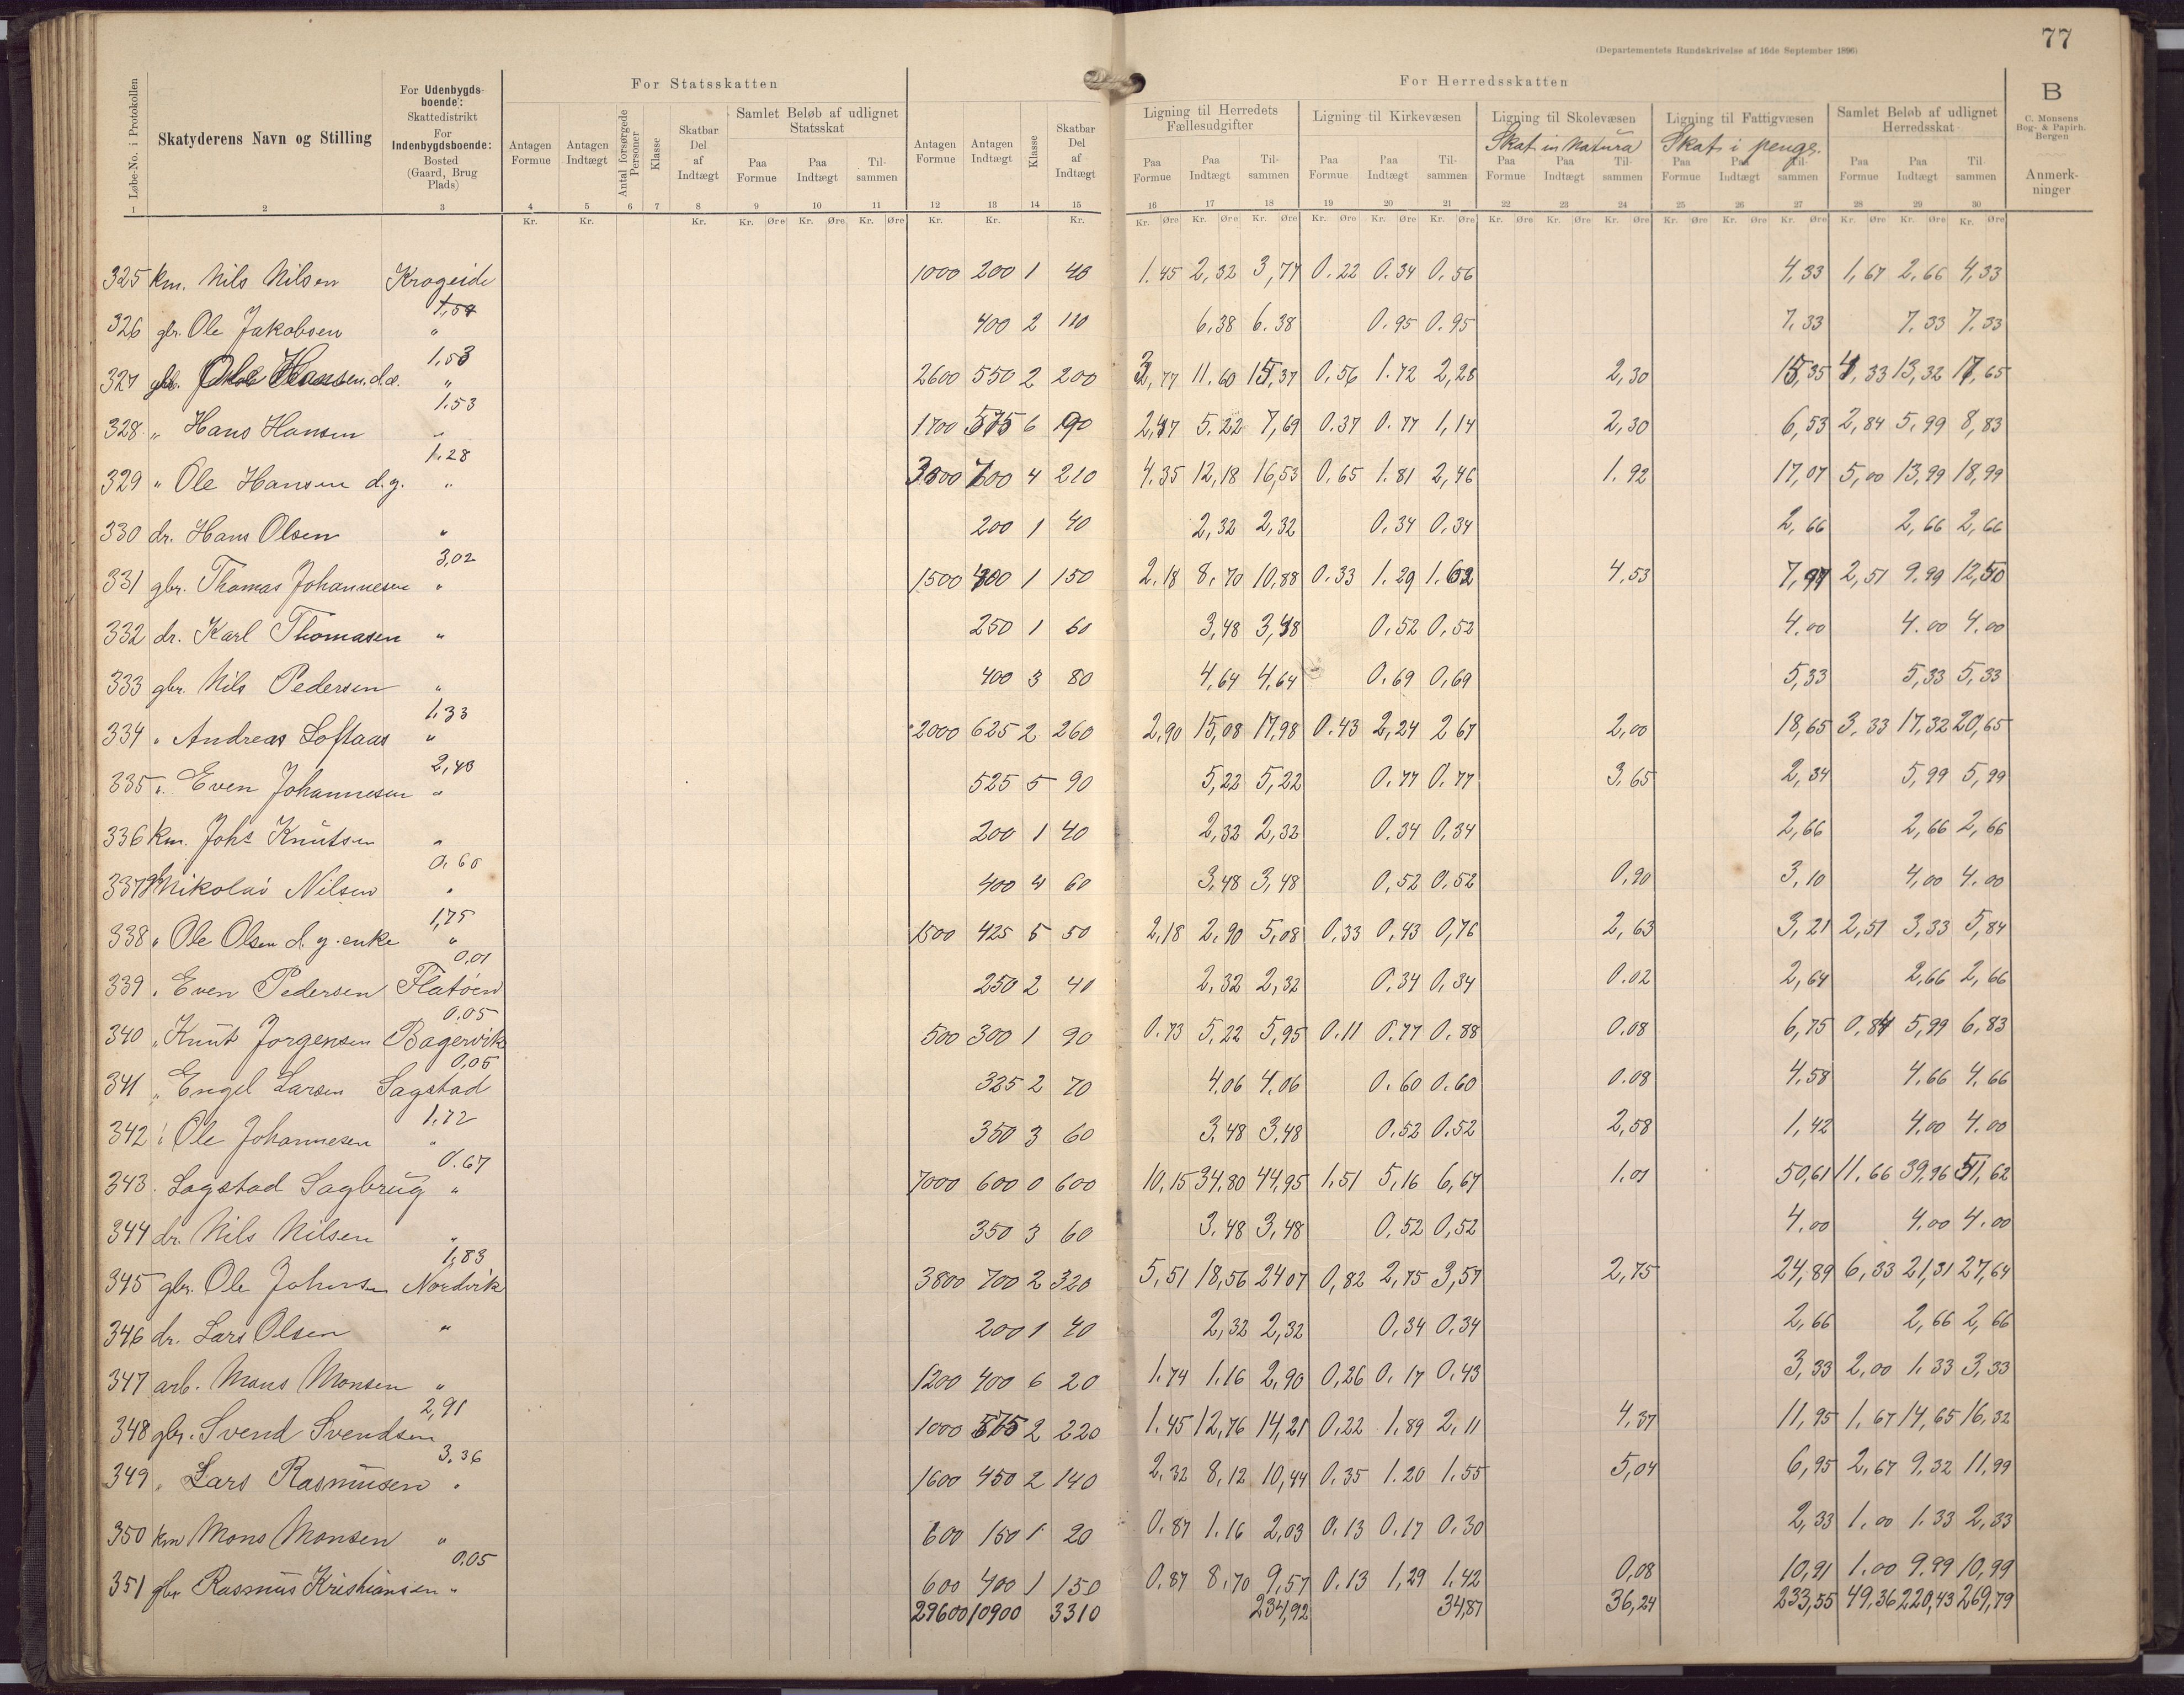 77
(Departementets Rundskrivelse af 16de September 1896)
For Statsskatten
For Herredsskatten
B
C. Monsens Bog- & Papirh. Bergen
Løbe-No. i Protokollen
Skatyderens Navn og Stilling
For Udenbygdsboende: Skattedistrikt For Indenbygdsboende: Bosted (Gaard, Brug Plads)
Antagen Formue
Antagen Indtægt
Antal forsørgede Personer
Klasse
Skatbar Del af Indtægt
Samlet Beløb af udlignet Statsskat
Paa Formue Paa Indtægt Tilsammen
Antagen Formue
Antagen Indtægt
Klasse
Skatbar Del af Indtægt
Ligning til Herredets Fællesudgifter
Paa Formue Paa Indtægt Tilsammen
Ligning til Kirkevæsen
Paa Formue Paa Indtægt Tilsammen
Ligning til Skolevæsen
Skat in natura
Paa Formue Paa Indtægt Tilsammen
Ligning til Fattigvæsen
Skat i penge.
Paa Formue Paa Indtægt Tilsammen
Samlet Beløb af udlignet Herredsskat
Paa Formue Paa Indtægt Tilsammen
Anmerkninger
1 2 3 4 5 6 7 8 9 10 11 12 13 14 15 16 17 18 19 20 21 22 23 24 25 26 27 28 29 30
Kr. Kr. Kr. Kr. Øre Kr. Øre Kr. Øre Kr. Kr. Kr. Kr. Øre Kr. Øre Kr. Øre Kr. Øre Kr. Øre Kr. Øre Kr. Øre Kr. Øre Kr. Øre Kr. Øre Kr. Øre Kr. Øre Kr. Øre Kr. Øre Kr. Øre
325 km. Nils Nilsen Krogeide 1000 200 1 40 1.45 2,32 3,77 0.22 0.34 0.56 4,33 1,67 2,66 4,33
1,54
326 gbr. Ole Jakobsen " 400 2 110 6,38 6.38 0.95 0.95 7,33 7,33 7,33
1.53
327 gbr. Ole Hansen d.æ. " 2600 550 2 200 3,77 11.60 15,37 0,56 1.72 2,28 2,30 15,35 4,33 13,32 17,65
1.53
328 " Hans Hansen " 1700 575 6 90 2,47 5.22 7,69 0.37 0.77 1,14 2,30 6,53 2,84 5,99 8,83
1.28
329 " Ole Hansen d.y. " 3000 700 4 210 4.35 12,18 16,53 0.65 1.81 2,46 1.92 17,07 5,00 13,99 18,99
330 dr. Hans Olsen " 200 1 40 2,32 2,32 0.34 0.34 2,66 2,66 2,66
3,02
331 gbr. Thomas Johannesen " 1500 400 1 150 2.18 8,70 10,88 0.33 1.29 1.62 4,53 7,97 2,51 9.99 12,50
332 dr. Karl Thomasen " 250 1 60 3,48 3,48 0.52 0.52 4.00 4.00 4.00
333 gbr. Nils Pedersen " 400 3 80 4,64 4,64 0.69 0,69 5,33 5,33 5,33
1.33
334 " Andreas Loftaas " 2000 625 2 260 2,90 15,08 17,98 0.43 2,24 2 67 2,00 18,65 3,33 17,32 20,65
2,43
335 " Even Johannesen " 525 5 90 5,22 5,22 0.77 0.77 3,65 2,34 5,99 5,99
336 km. Johs Knutsen " 200 1 40 2,32 2,32 0.34 0,34 2,66 2,66 2,66
0.60
337 gbr Nikolai Nilsen " 400 4 60 3,48 3,48 0,52 0.52 0,90 3,10 4,00 4.00
1,75
338 " Ole Olsen d. y. enke " 1500 425 5 50 2,18 2,90 5,08 0,33 0,43 0,76 2,63 3,21 2,51 3,33 5,84
0.01
339 " Even Pedersen Flatøen 250 2 40 2,32 2,32 0.34 0,34 0.02 2,64 2,66 2,66
0.05
340 " Knut Jorgensen Bagervik 500 300 1 90 0.73 5,22 5,95 0.11 0.77 0.88 0.08 6,75 0,84 5,99 6,83
0,05
341 " Engel Larsen Sagstad 325 2 70 4.06 4.06 0.60 0.60 0.08 4,58 4,66 4,66
1.72
342 " Ole Johannesen " 350 3 60 3,48 3,48 0.52 0.52 2,58 1,42 4.00 4.00
0.67
343 . Sagstad Sagbrug " 7000 600 0 600 10,15 34,80 44,95 1,51 5,16 6,67 1.01 50,61 11,66 39,96 51,62
344 dr. Nils Nilsen " 350 3 60 3,48 3,48 0,52 0,52 4.00 4,00 4.00
1,83
345 gbr. Ole Johnsen Nordvik 3800 700 2 320 5,51 18,56 24 07 0,82 2,75 3,57 2,75 24,89 6,33 21,31 27,64
346 dr. Lars Olsen " 200 1 40 2,32 2,32 0,34 0.34 2,66 2,66 2,66
347 arb. Mons Monsen " 1200 400 6 20 1.74 1.16 2,90 0,26 0.17 0.43 3,33 2,00 1.33 3,33
2,91
348 gbr. Svend Svendsen 1000 575 2 220 1.45 12,76 14,21 0,22 1,89 2,11 4,37 11,95 1,67 14,65 16,32
3.36
349 " Lars Rasmusen " 1600 450 2 140 2,32 8,12 10,44 0,35 1.20 1.55 5,04 6,95 2,67 9,32 11,99
350 km Mons Monsen " 600 150 1 20 0.87 1.16 2,03 0.13 0.17 0.30 2,33 1.00 1.33 2,33
0.05
351 gbr Rasmus Kristiansen " 600 400 1 150 0.87 8,70 9,57 0.13 1,29 1.42 0,08 10,91 1.00 9,99 10,99
29600 10900 3310 234,92 34,87 36,24 233,55 49,36 220,43 269,79